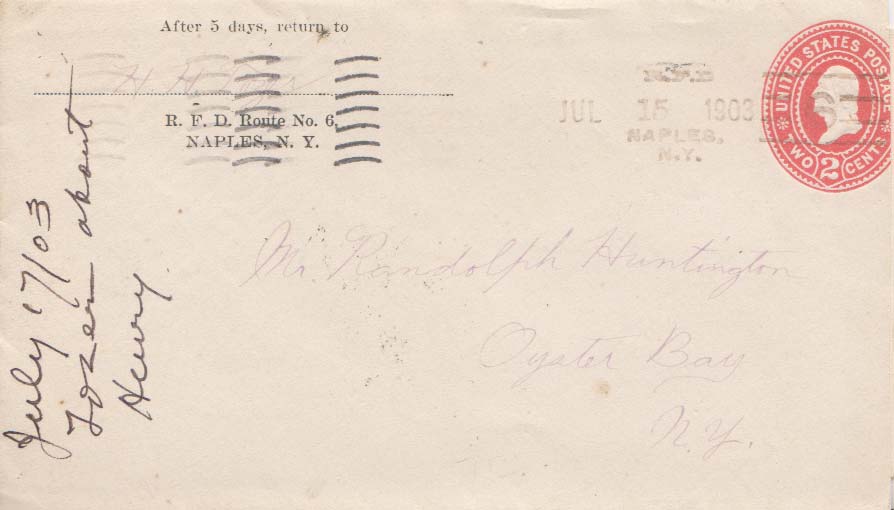 After 5 days, return to
H. H. Tozer
R. F. D. Route No. 6,
NAPLES, N. Y.
R.F.D.
JUL 15 1903
NAPLES,
N.Y.
UNITED STATES POSTAGE
TWO 2 CENTS
Mr Randolph Huntington
Oyster Bay
N.Y.
July 17/03
Tozer about
Henry.